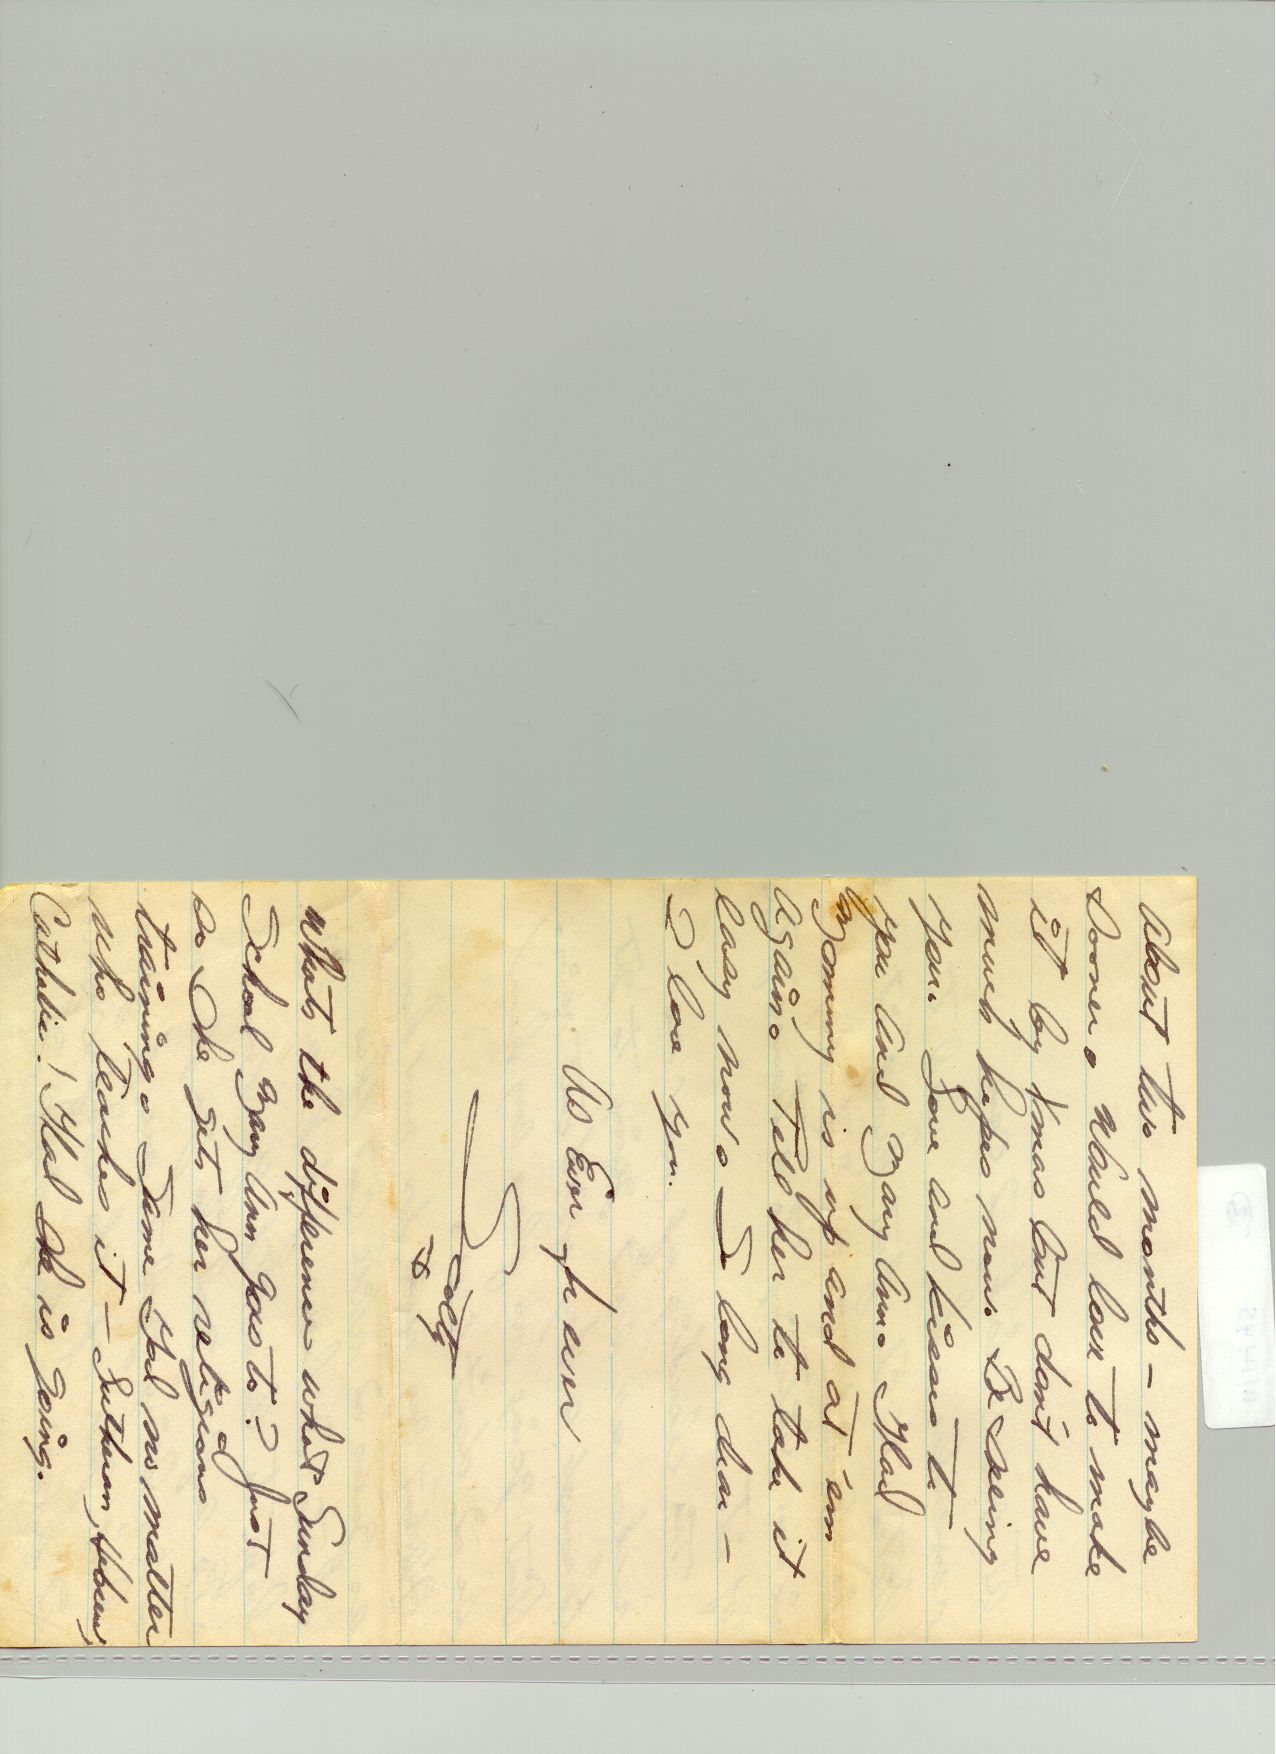 about two months – maybe
sooner. Would love to make
it by Xmas but don't have
much hopes now. Be seeing
you. Love and kisses to
you and Mary Ann. Glad
Mommy is up and at 'em
again. Tell her to take it
easy now. So long dear –
I love you.
As Ever for ever
Scotty
What's the difference what Sunday
School Mary Ann goes to? Just
so she gets her religious
training. Same God no matter
who teaches it – Lutheran, Hebrew,
Catholic! Glad she is going.